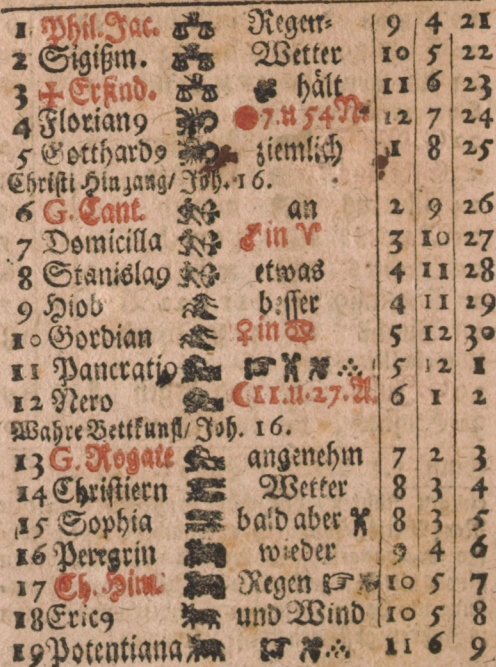 1 Phil. Jac. Regen- 9 4 21
2 Sigißm. Wetter 10 5 22
3 ✝ Erfind. hält 11 6 23
4 Florian9 ●7. u 54 N. 12 7 24
5 Gotthard9 ziemlich 1 8 25
Christi Hingang/ Joh. 16.
6 G. Cant. an 2 9 26
7 Domicilla ♂ in ♈ 3 10 27
8 Stanisla9 etwas 4 11 28
9 Hiob besser 4 11 29
10 Gordian ♀ in 5 12 30
11 Pancrati9 ☞ 5 12 1
12 Nero ☾11. u. 27. 6 1 2
Wahre Bettkunst/ Joh. 16.
13 G. Rogate angenehm 7 2 3
14 Christiern Wetter 8 3 4
15 Sophia bald aber 8 3 5
16 Peregrin wieder 9 4 6
17 Ch. Him. Regen ☞ 10 5 7
18 Eric9 und Wind 10 5 8
19 Potentiana ☞ 11 6 9